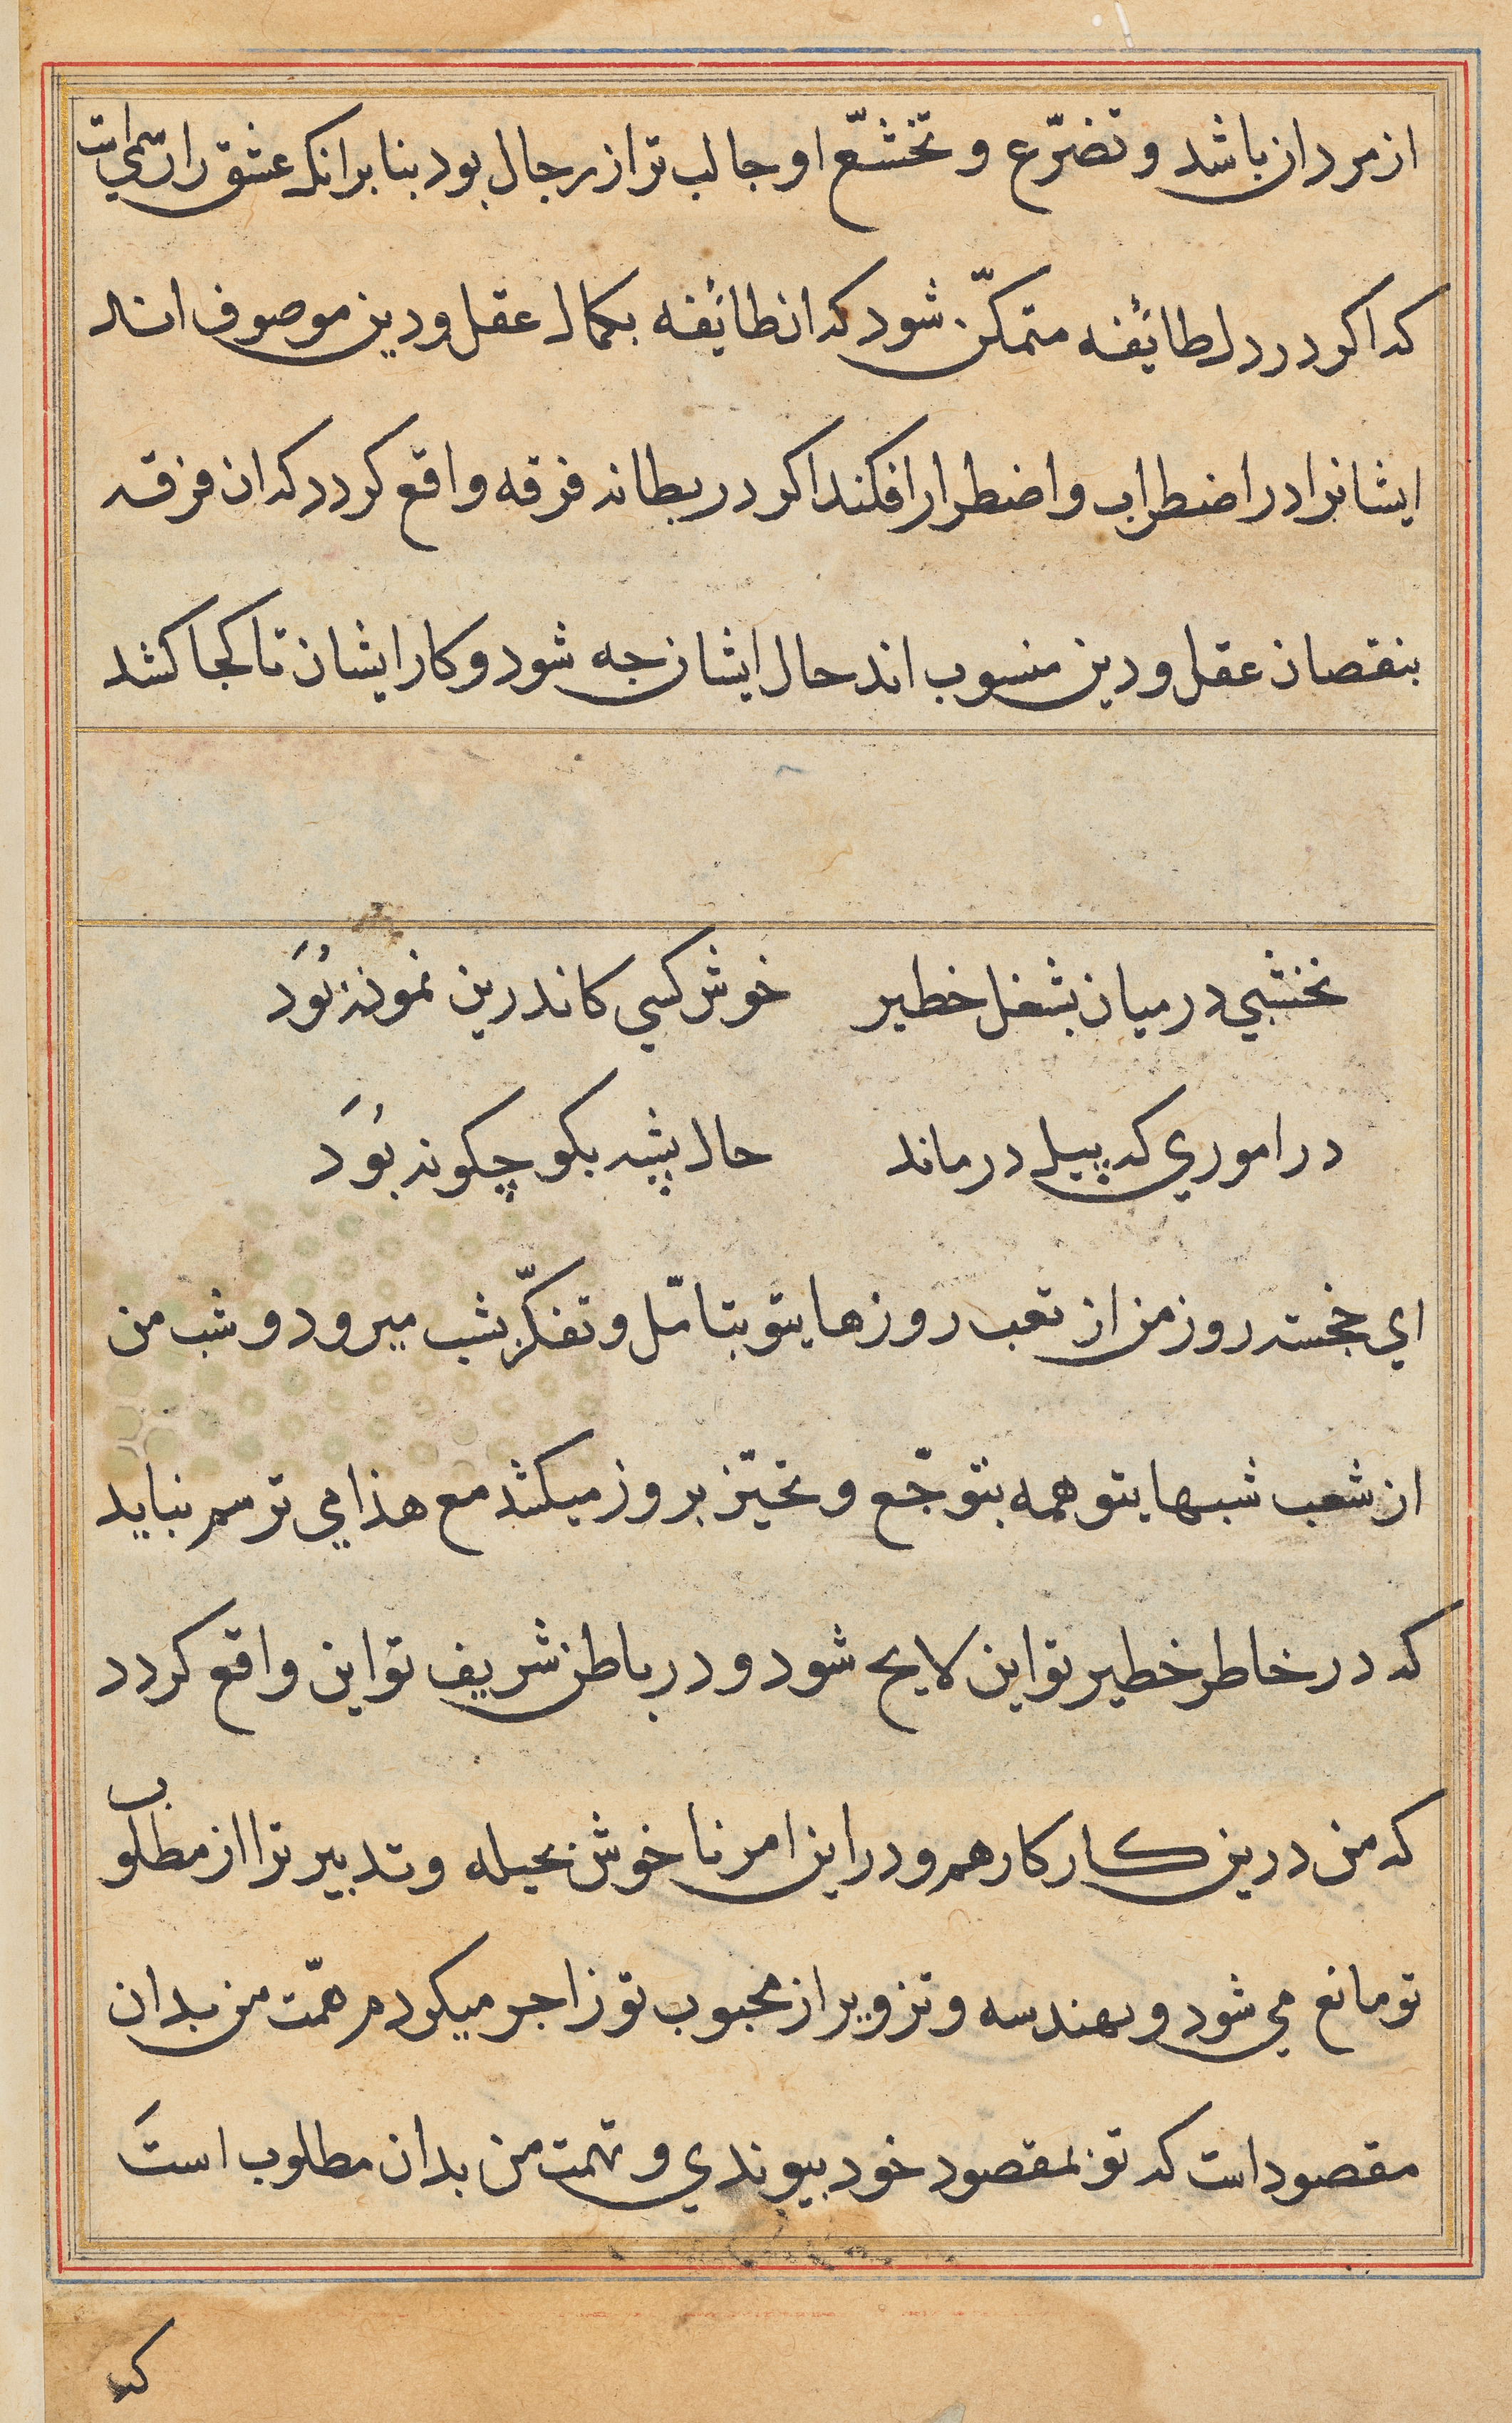 از مردان باشد و تضرّع و تخشّع او جالب تر از رجال بود بنا بر انک عشق را رسمی است
که اکر در دل طائفه متمکّن شود که ان طائفه بکمال عقل و دین موصوف اند
ایشانرا در اضطراب و اضطرار افکند اکر در بطانه فرقه واقع کردد که ان فرقه
بنقصان عقل و دین منسوب اند حال ایشان جه شود و کار ایشان تا کجا کشد
نخشبي در میان بشغل خطیر خوش کسي کاندرین نمونه بُوَد
در اموري که پیل درماند حال پشه بکو چکونه بُوَد
اي خجسته روز من از تعب روزهاء تو بتامّل و تفکّر بشب میرود و شب من
از شعب شبهاء تو همه بتوجّع و تحیّر بروز میکشد مع هذا مي ترسم نباید
که در خاطر خطیر تو این لایح شود و در باطن شریف تو این واقع کردد
که من درین کار کارهم و در این امر ناخوش بحیله و تدبیر ترا از مطلوب
تو مانع مي شود و بهندسه و تزویر از محبوب تو زاجر میکردم همّت من بدان
مقصود است که تو بمقصود خود بپوندي و نهمت من بدان مطلوب استَ
که